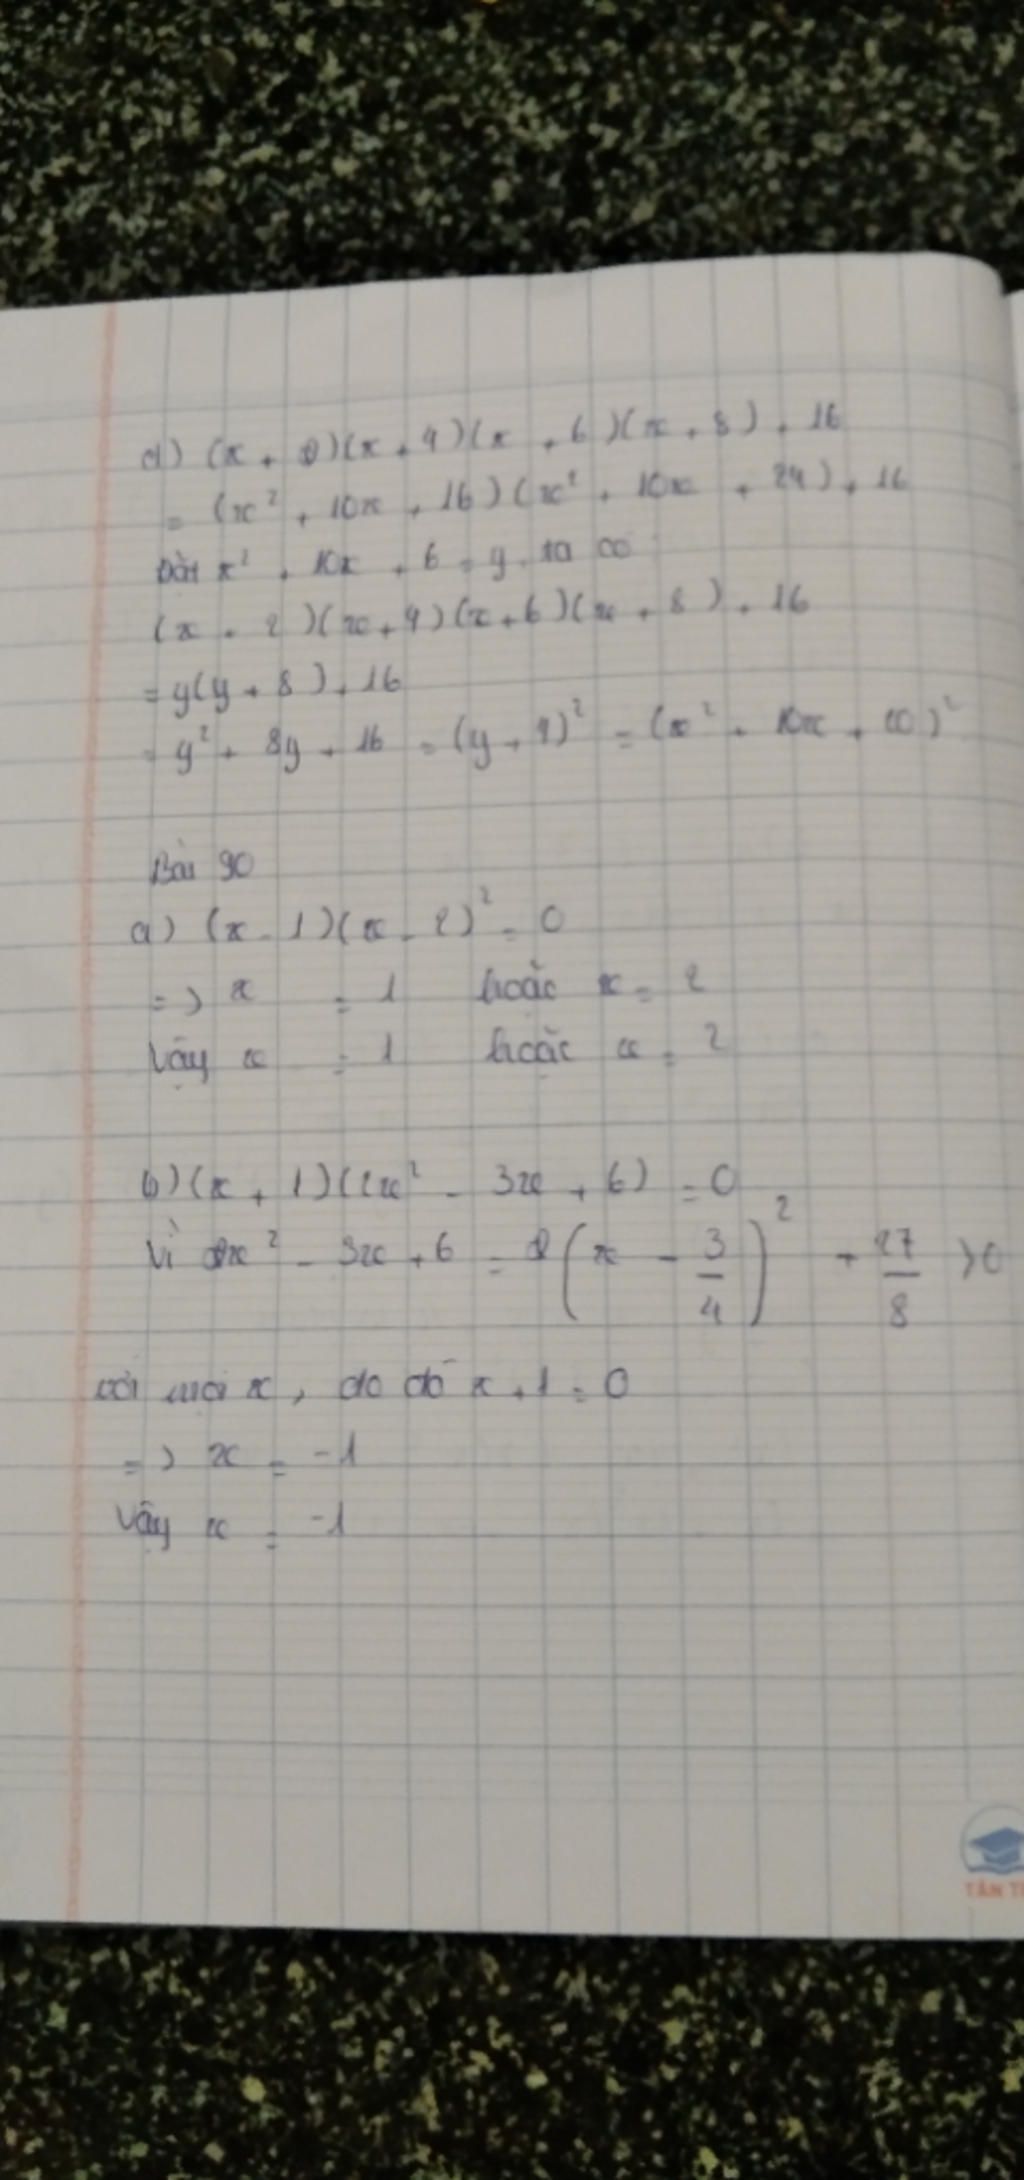 d) (x + 2)(x + 4)(x + 6)(x + 8) + 16
= (x² + 10x + 16)(x² + 10x + 24) + 16
Đặt x² + 10x + 6 = y. ta có
(x + 2)(x + 4)(x + 6)(x + 8) + 16
= y(y + 8) + 16
= y² + 8y + 16 = (y + 4)² = (x² + 10x + 20)²
Bài 90
a) (x - 1)(x - 2)² = 0
=> x = 1 hoặc x = 2
Vậy x = 1 hoặc x = 2
b) (x + 1)(2x² - 3x + 6) = 0
Vì 2x² - 3x + 6 = 2(x - 3/4)² + 27/8 > 0
với mọi x, do đó x + 1 = 0
=> x = -1
Vậy x = -1